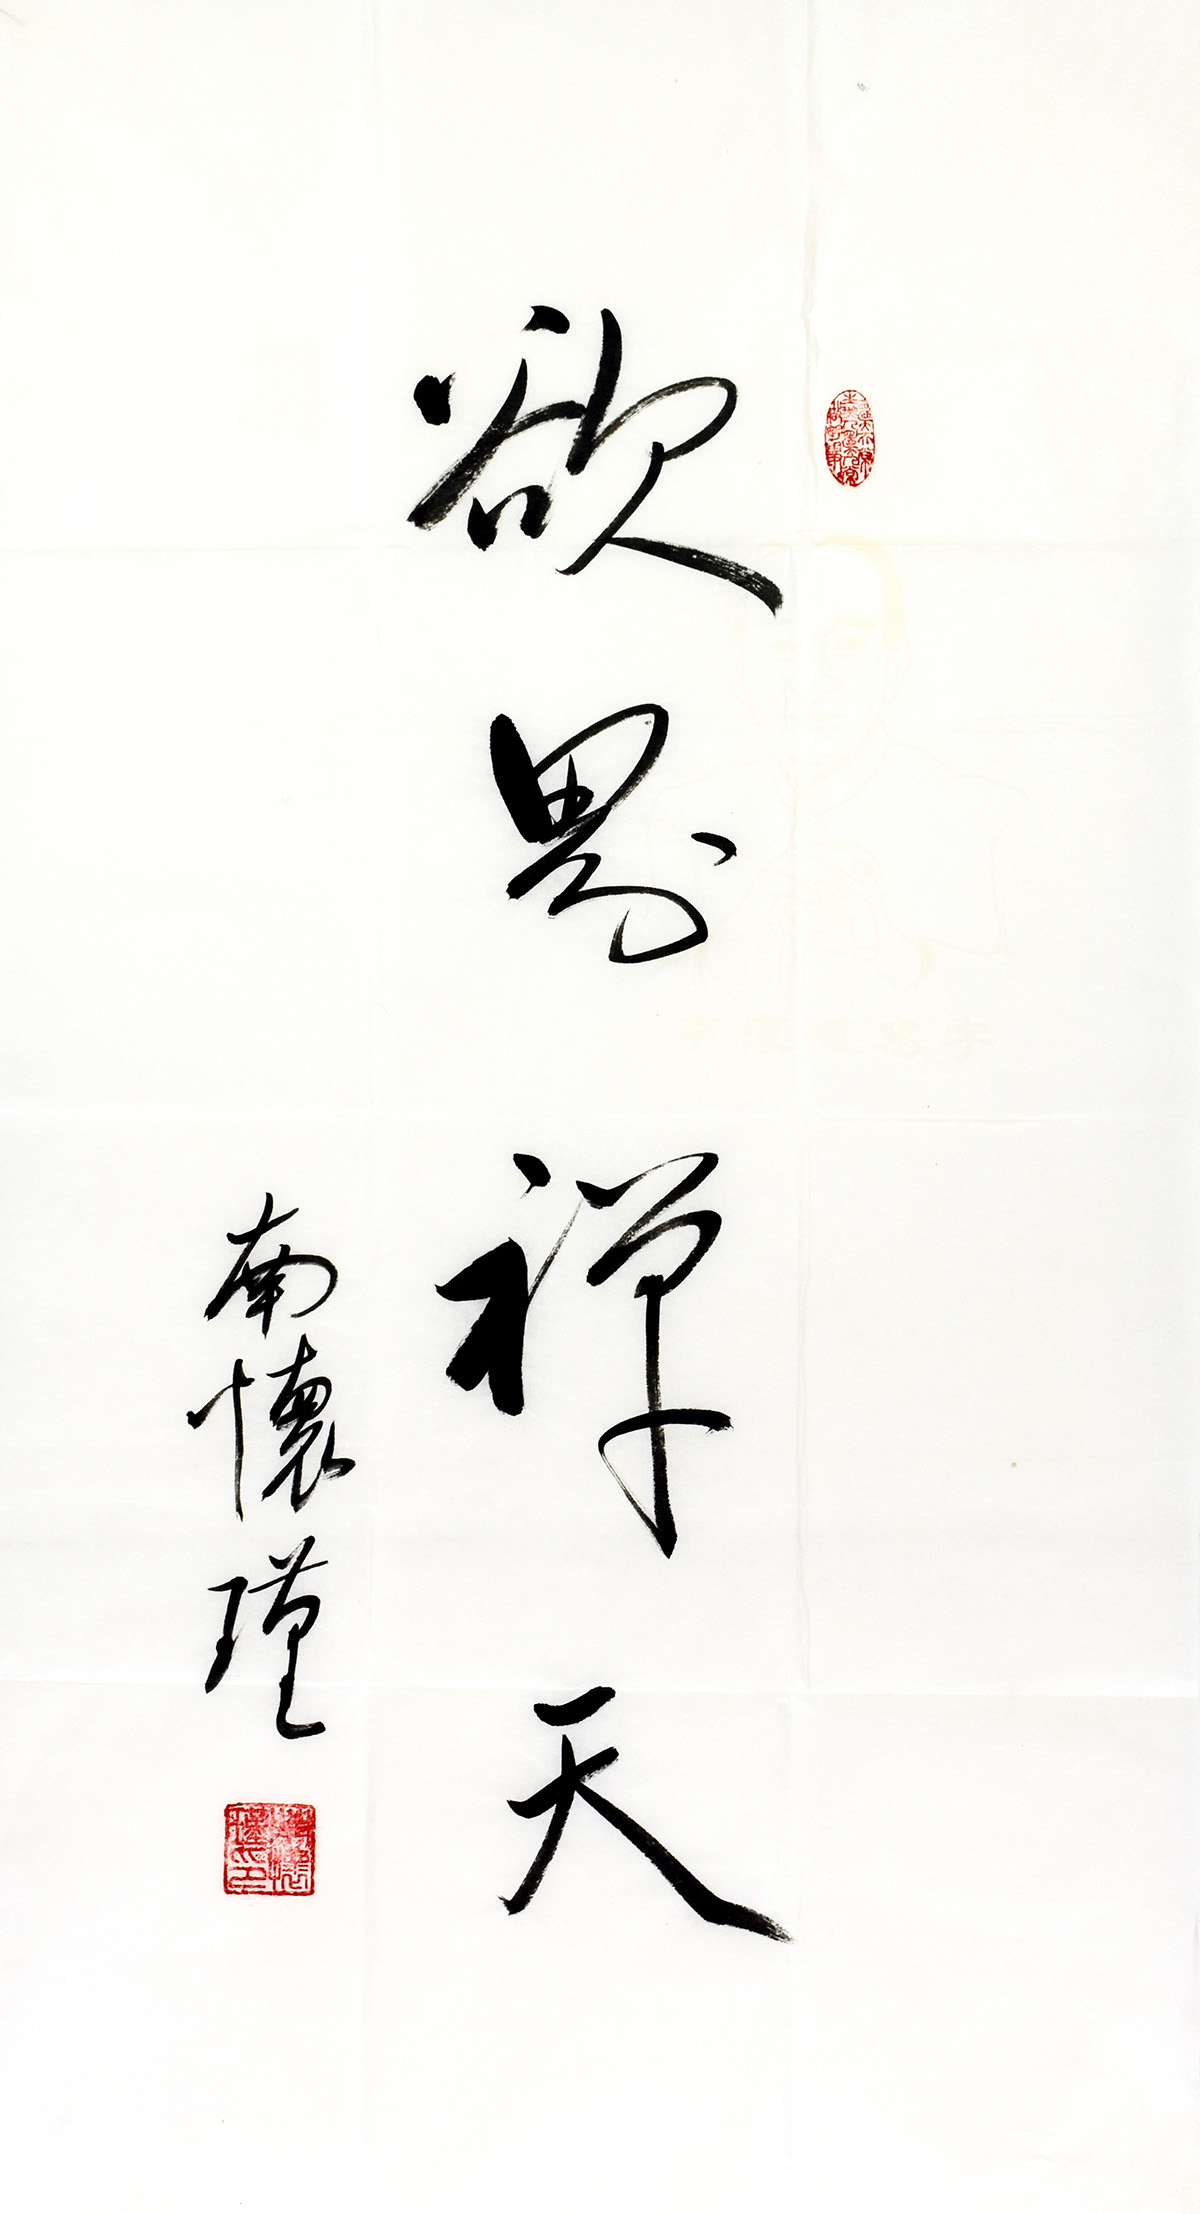 欲界禅天
南懷瑾